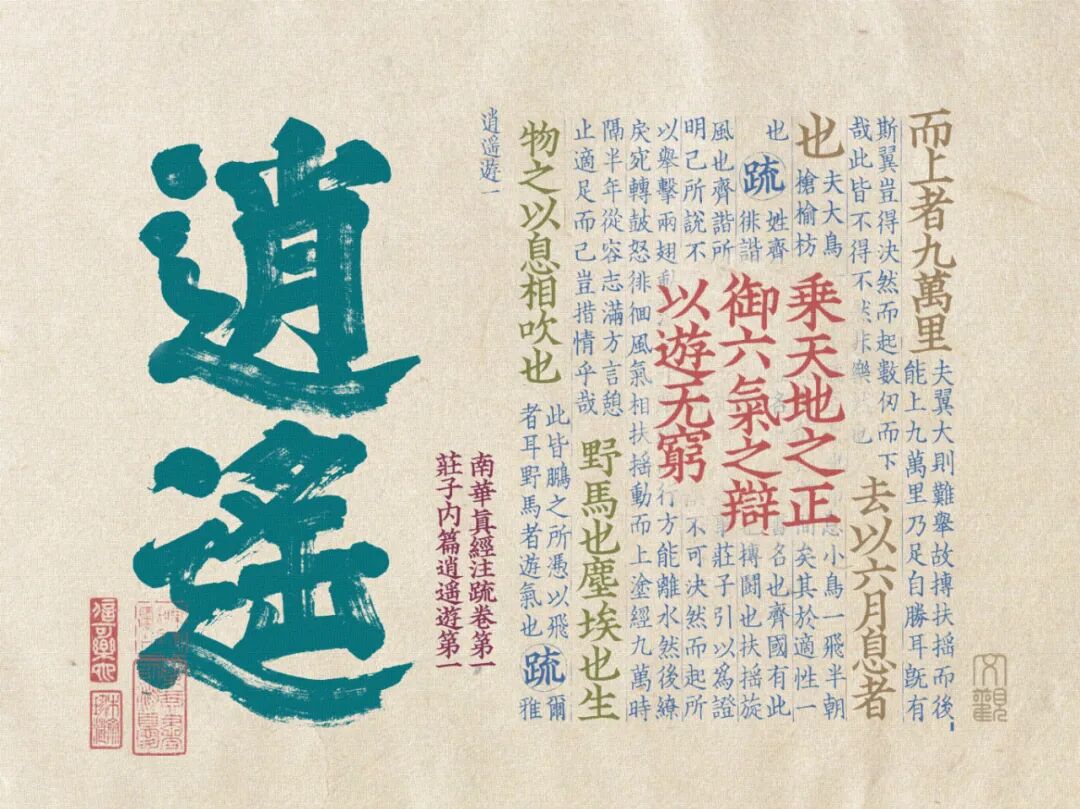 而上者九萬里
夫翼大則難舉故搏扶揺而後
能上九萬里乃足自勝耳旣有
斯翼豈得決然而起數仞而下
哉此皆不得不然非樂
去以六月息者
也
夫大鳥
槍榆枋
小鳥一飛半朝
矣其於適性一
也
疏
姓齊
徘諧
名也齊國有此
也搏鬭也扶揺旋
風也齊諧所
明己所說不
莊子引以爲證
不可決然而起所
以舉擊兩翅動
行方能離水然後繚
戾宛轉鼓怒徘徊風氣相扶揺動而上塗經九萬時
隔半年從容志滿方言憩
止適足而已豈措情乎哉
野馬也塵埃也生
物之以息相吹也
此皆鵬之所憑以飛
者耳野馬者遊氣也
疏
爾
雅
逍遥遊一
乘天地之正
御六氣之辯
以遊无窮
南華眞經注疏卷第一
莊子內篇逍遥遊第一
逍遥